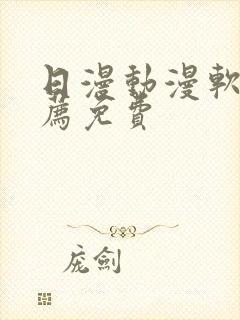 日漫動漫軟
薦免費
庞劍